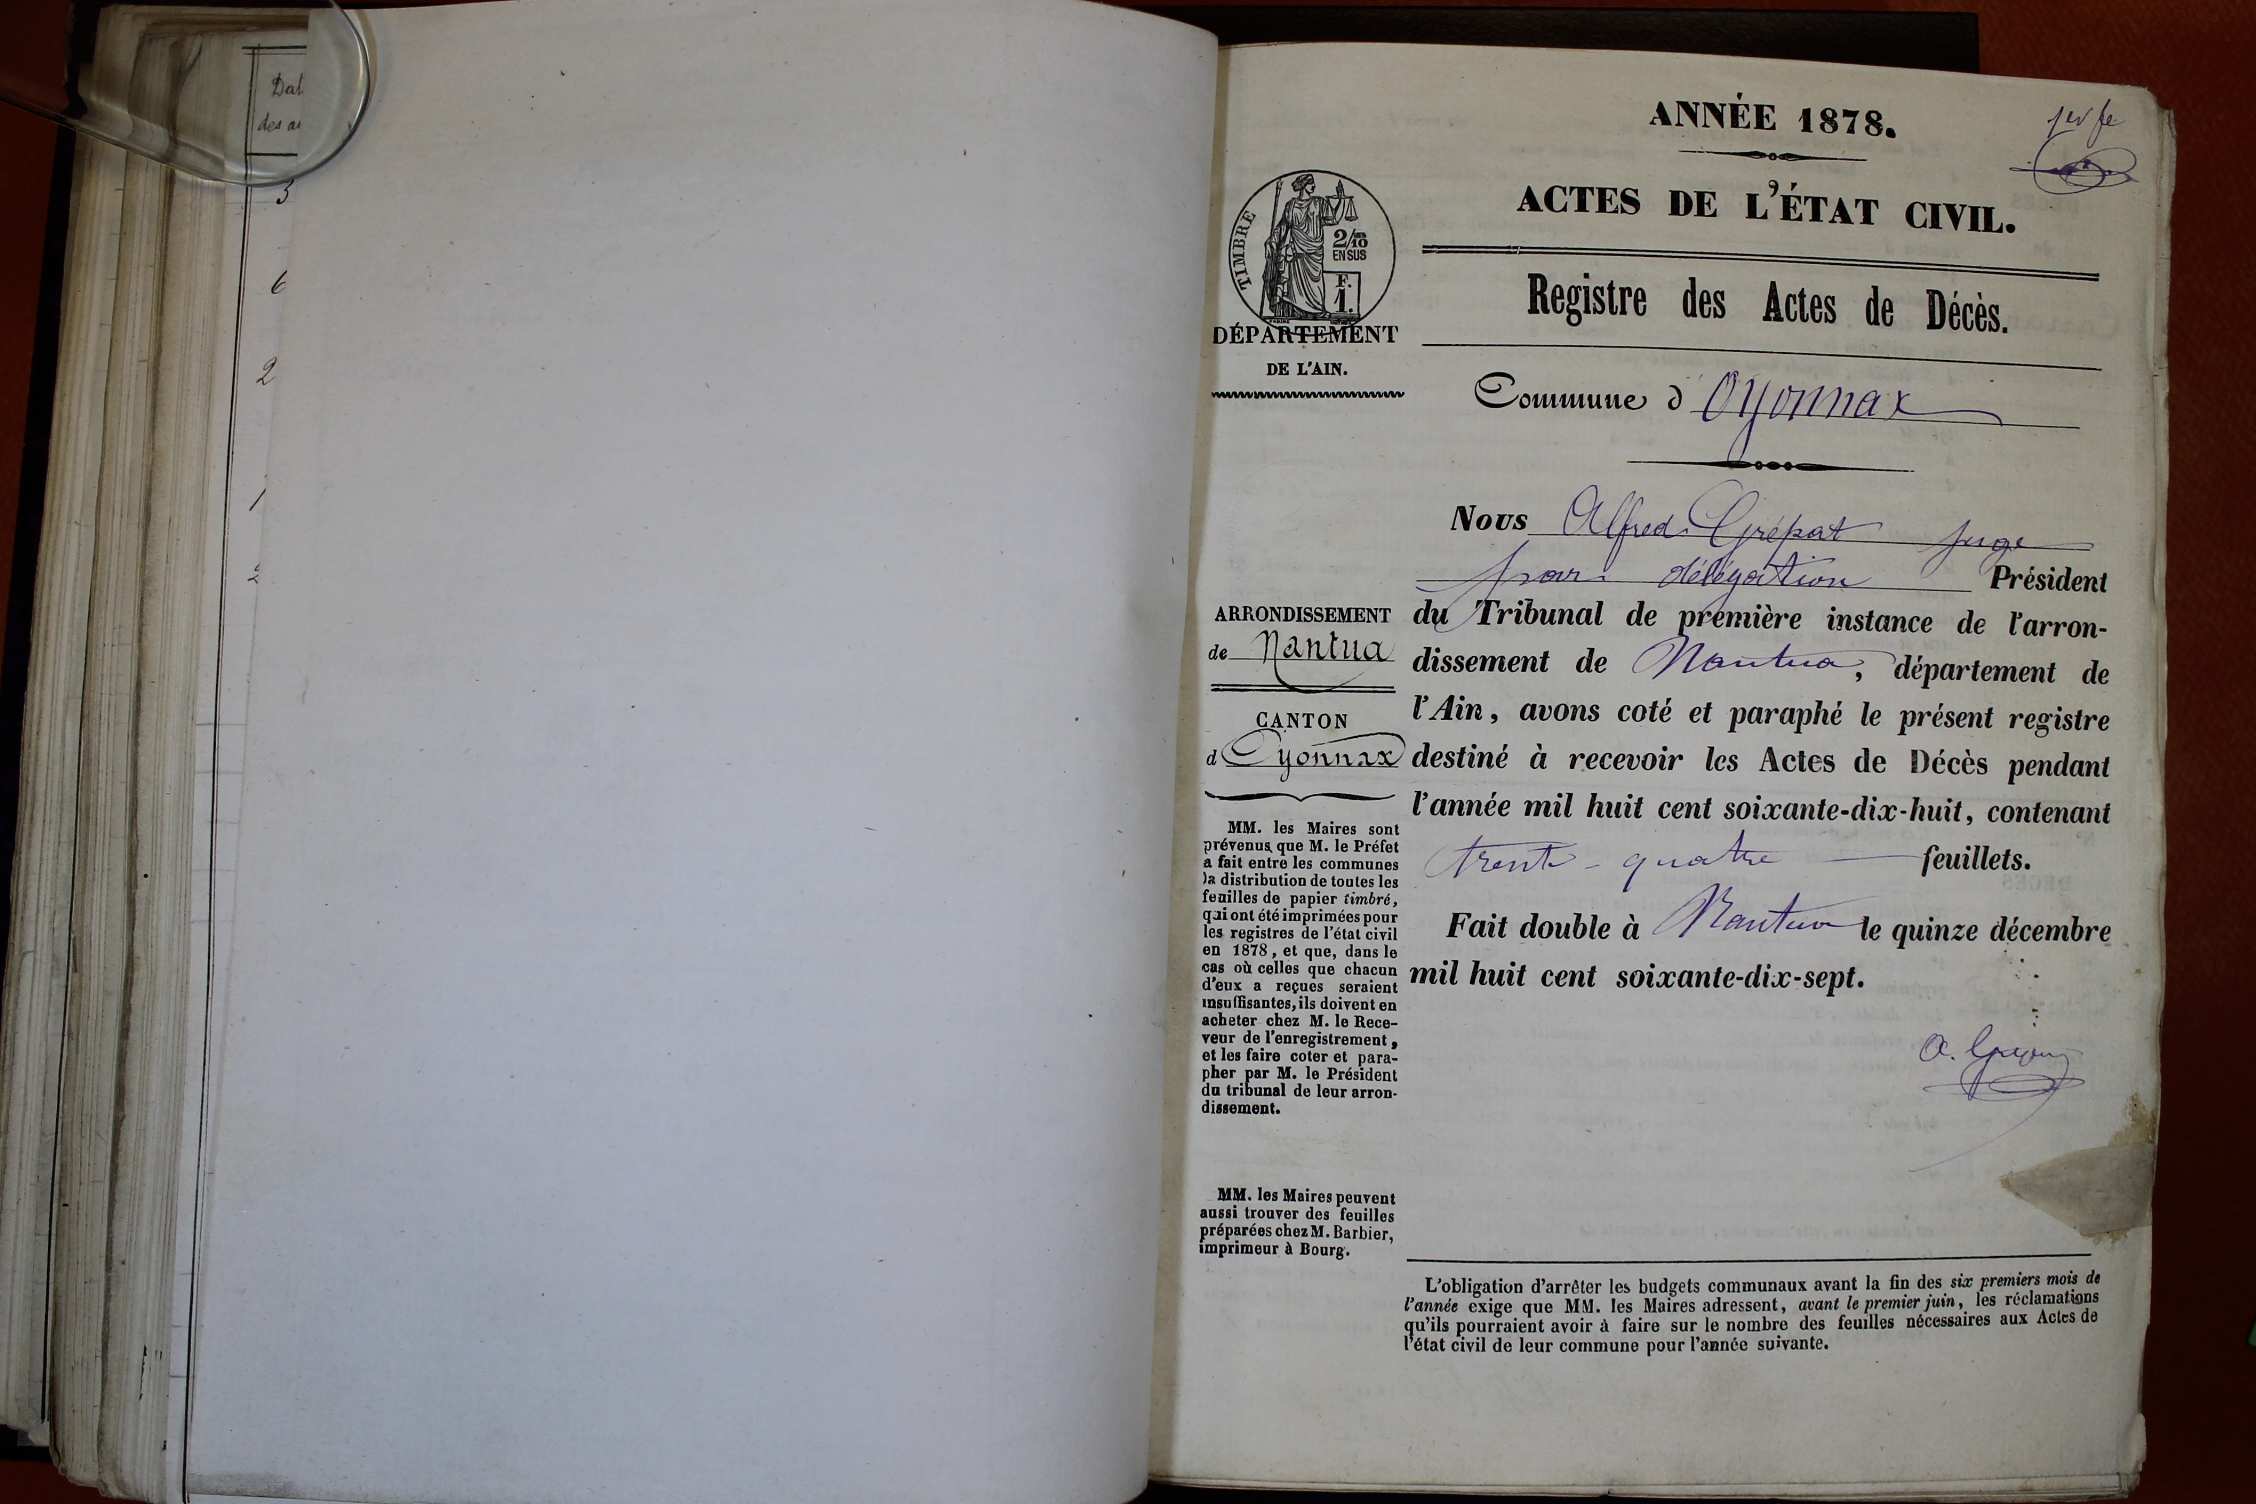 Dat
des ac
5
6
2
1
ANNÉE 1878.
1er fe
ACTES DE L'ÉTAT CIVIL.
TIMBRE
2/10
EN SUS
F.
1.
Registre des Actes de Décès.
DÉPARTEMENT
DE L'AIN.
Commune d'Oyonnax
Nous Alfred Grépat juge
par délégation Président
ARRONDISSEMENT
de Nantua
du Tribunal de première instance de l'arron-
dissement de Nantua, département de
l'Ain, avons coté et paraphé le présent registre
CANTON
d'Oyonnax
destiné à recevoir les Actes de Décès pendant
l'année mil huit cent soixante-dix-huit, contenant
trente-quatre feuillets.
Fait double à Nantua le quinze décembre
mil huit cent soixante-dix-sept.
MM. les Maires sont
prévenus que M. le Préfet
a fait entre les communes
la distribution de toutes les
feuilles de papier timbré,
qui ont été imprimées pour
les registres de l'état civil
en 1878, et que, dans le
cas où celles que chacun
d'eux a reçues seraient
insuffisantes, ils doivent en
acheter chez M. le Rece-
veur de l'enregistrement,
et les faire coter et para-
pher par M. le Président
du tribunal de leur arron-
dissement.
MM. les Maires peuvent
aussi trouver des feuilles
préparées chez M. Barbier,
imprimeur à Bourg.
L'obligation d'arrêter les budgets communaux avant la fin des six premiers mois de
l'année exige que MM. les Maires adressent, avant le premier juin, les réclamations
qu'ils pourraient avoir à faire sur le nombre des feuilles nécessaires aux Actes de
l'état civil de leur commune pour l'année suivante.